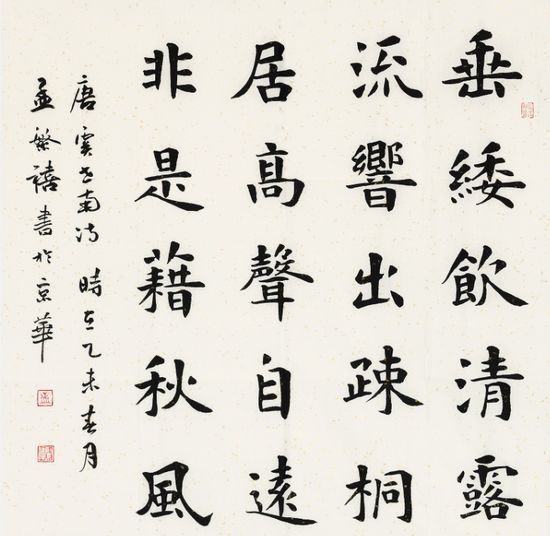 垂緌飲清露
流響出疎桐
居高聲自遠
非是藉秋風
唐虞世南詩 時在乙未春月
孟繁禧書於京華